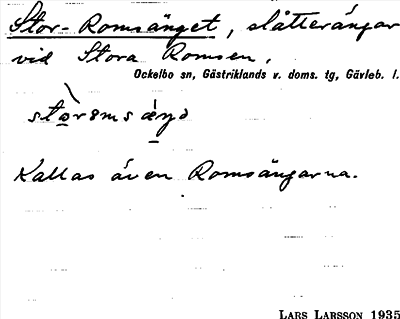 Stor-Romsänget, slåtterängar
vid Stora Romsen.
Ockelbo sn, Gästriklands v. doms. tg, Gävleb. l.
Kallas även Romsängarna.
LARS LARSSON 1935